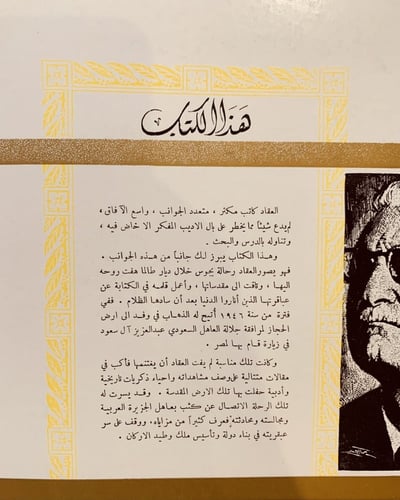 هذا الكتاب
العقاد كاتب مكثر ، متعدد الجوانب ، واسع الآفاق ،
لم يدع شيئاً مما يخطر على بال الاديب المفكر الا خاض فيه ،
وتناوله بالدرس والبحث .
وهذا الكتاب يبرز لك جانباً من هذه الجوانب .
فهو يصور العقاد رحالة يجوس خلال ديار طالما هفت روحه
اليها ، وتاقت الى مقدساتها ، وأعمل قلمه في الكتابة عن
عباقرتها الذين أناروا الدنيا بعد أن سادها الظلام . ففي
فترة من سنة ١٩٤٦ أتيح له الذهاب في وفد الى ارض
الحجاز لمرافقة جلالة العاهل السعودي عبدالعزيز آل سعود
في زيارة قام بها لمصر .
وكانت تلك مناسبة لم يفت العقاد أن يغتنمها فأكب في
مقالات متتالية على وصف مشاهداته واحياء ذكريات تاريخية
وأدبية حفلت بها تلك الارض المقدسة . وقد يسرت له
تلك الرحلة الاتصال عن كثب بعاهل الجزيرة العربية
ومجالسته ومحادثته فعرف كثيراً من مزاياه . ووقف على سر
عبقريته في بناء دولة وتأسيس ملك وطيد الاركان .